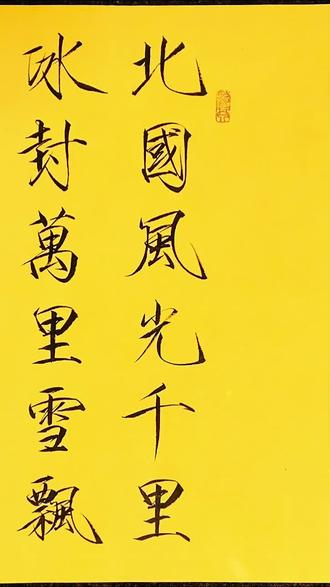 北國風光千里
冰封萬里雪飄